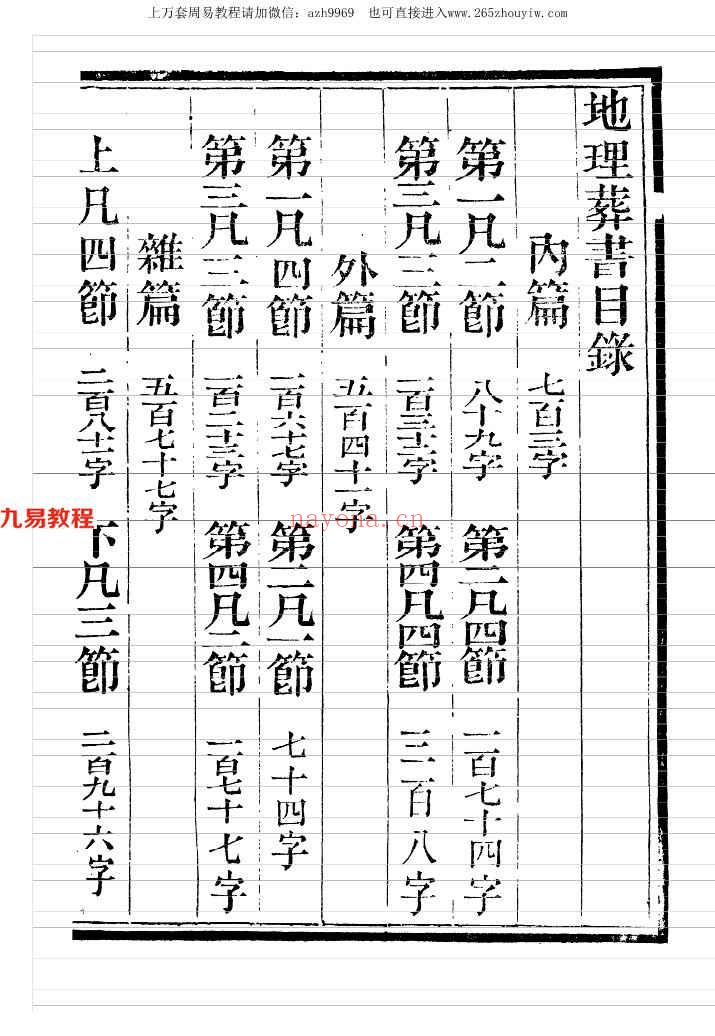 上万套周易教程请加微信：azh9969 也可直接进入www.265zhouyiw.com
地理葬書目錄
內篇 七百三字
第一凡二節 八十九字 第二凡四節 一百七十四字
第三凡三節 一百三十二字 第四凡四節 三百八字
外篇 五百四十一字
第一凡四節 一百六十七字 第二凡一節 七十四字
第三凡三節 一百二十三字 第四凡二節 一百七十七字
雜篇 五百七十七字
上凡四節 二百八十一字 下凡三節 二百九十六字
九易教程
nayona.cn